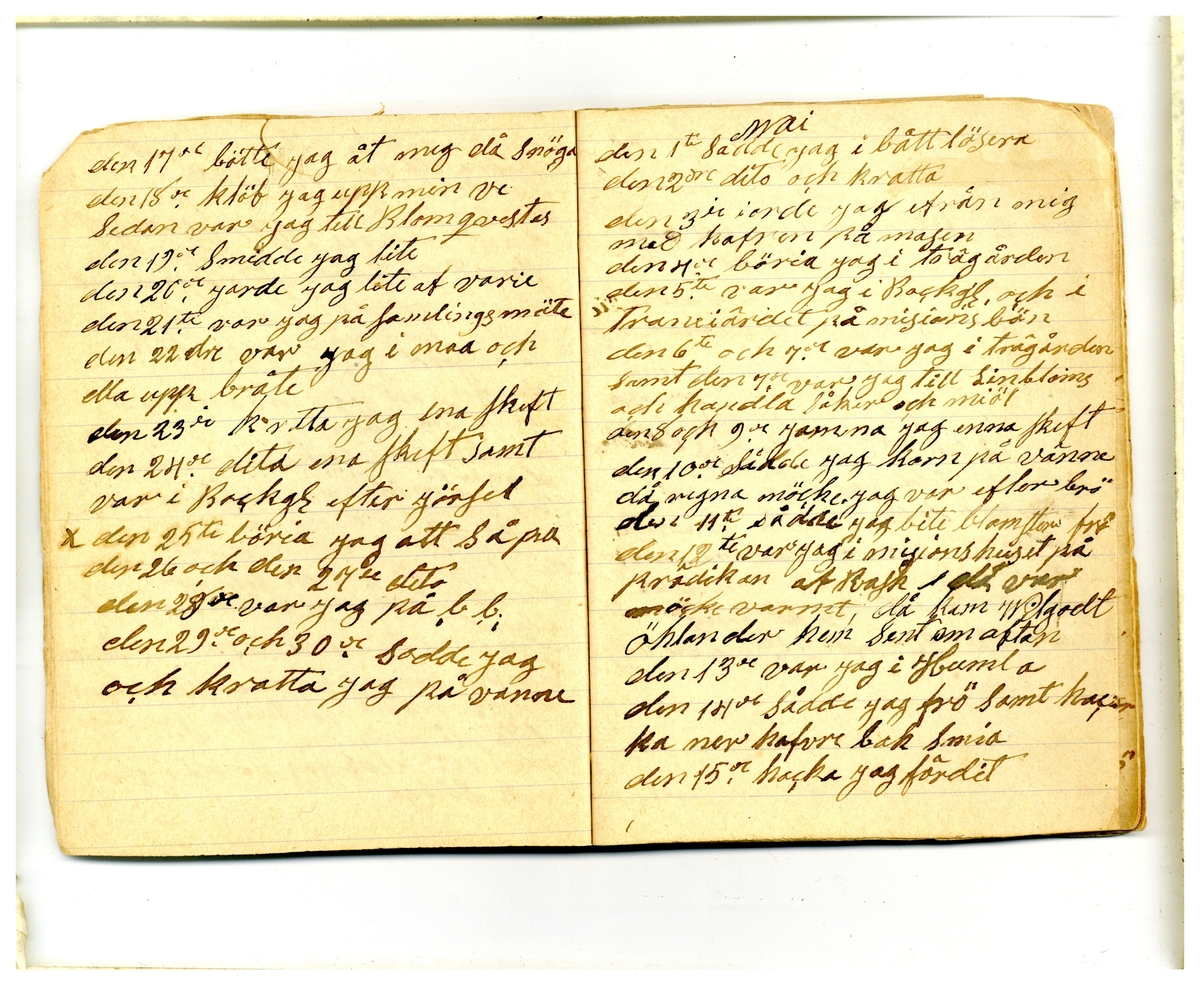 den 17de bötte jag åt mig då Snöga
den 18de klöb jag upp min ve
Sedan var jag till Blomqvestes
den 19de Smidde jag lite
den 20de jorde jag lite af varie
den 21te var jag på Samlingsmöte
den 22dre var jag i maa och
ella upp bråte
den 23ie kratta jag ena skeft
den 24de dito ena skeft samt
var i Backgl efter görsel
x den 25te böria jag att Så på
den 26 och den 27de dito
den 28de var jag på b. b.
den 29de och 30de Sodde jag
och kratta jag på vanne
Mai
den 1te Sådde jag i båttlösera
den 2dre dito och kratta
den 3ie iorde jag ifrån mig
med hafren på måsen
den 4de böria jag i trägården
den 5te var jag i Backgl. och i
Traneiärdet på misions bön
den 6te och 7de var jag i trägården
Samt den 7de var jag till Linbloms
och handla Såker och miöl
den 8 och 9de jamna jag enna skeft
den 10de Sådde jag korn på vanne
då rigna möcke jag var efter brö
den 11te sådde jag lite blomster frö
den 12te var jag i misionshuset på
prädikan af Bask då var
möcke varmt, då kam
Öhlander hem Sent om aftan
den 13de var jag i Humla
den 14de Sådde jag frö Samt
ka ner hafvre bak Smia
den 15de hacka jag färdit